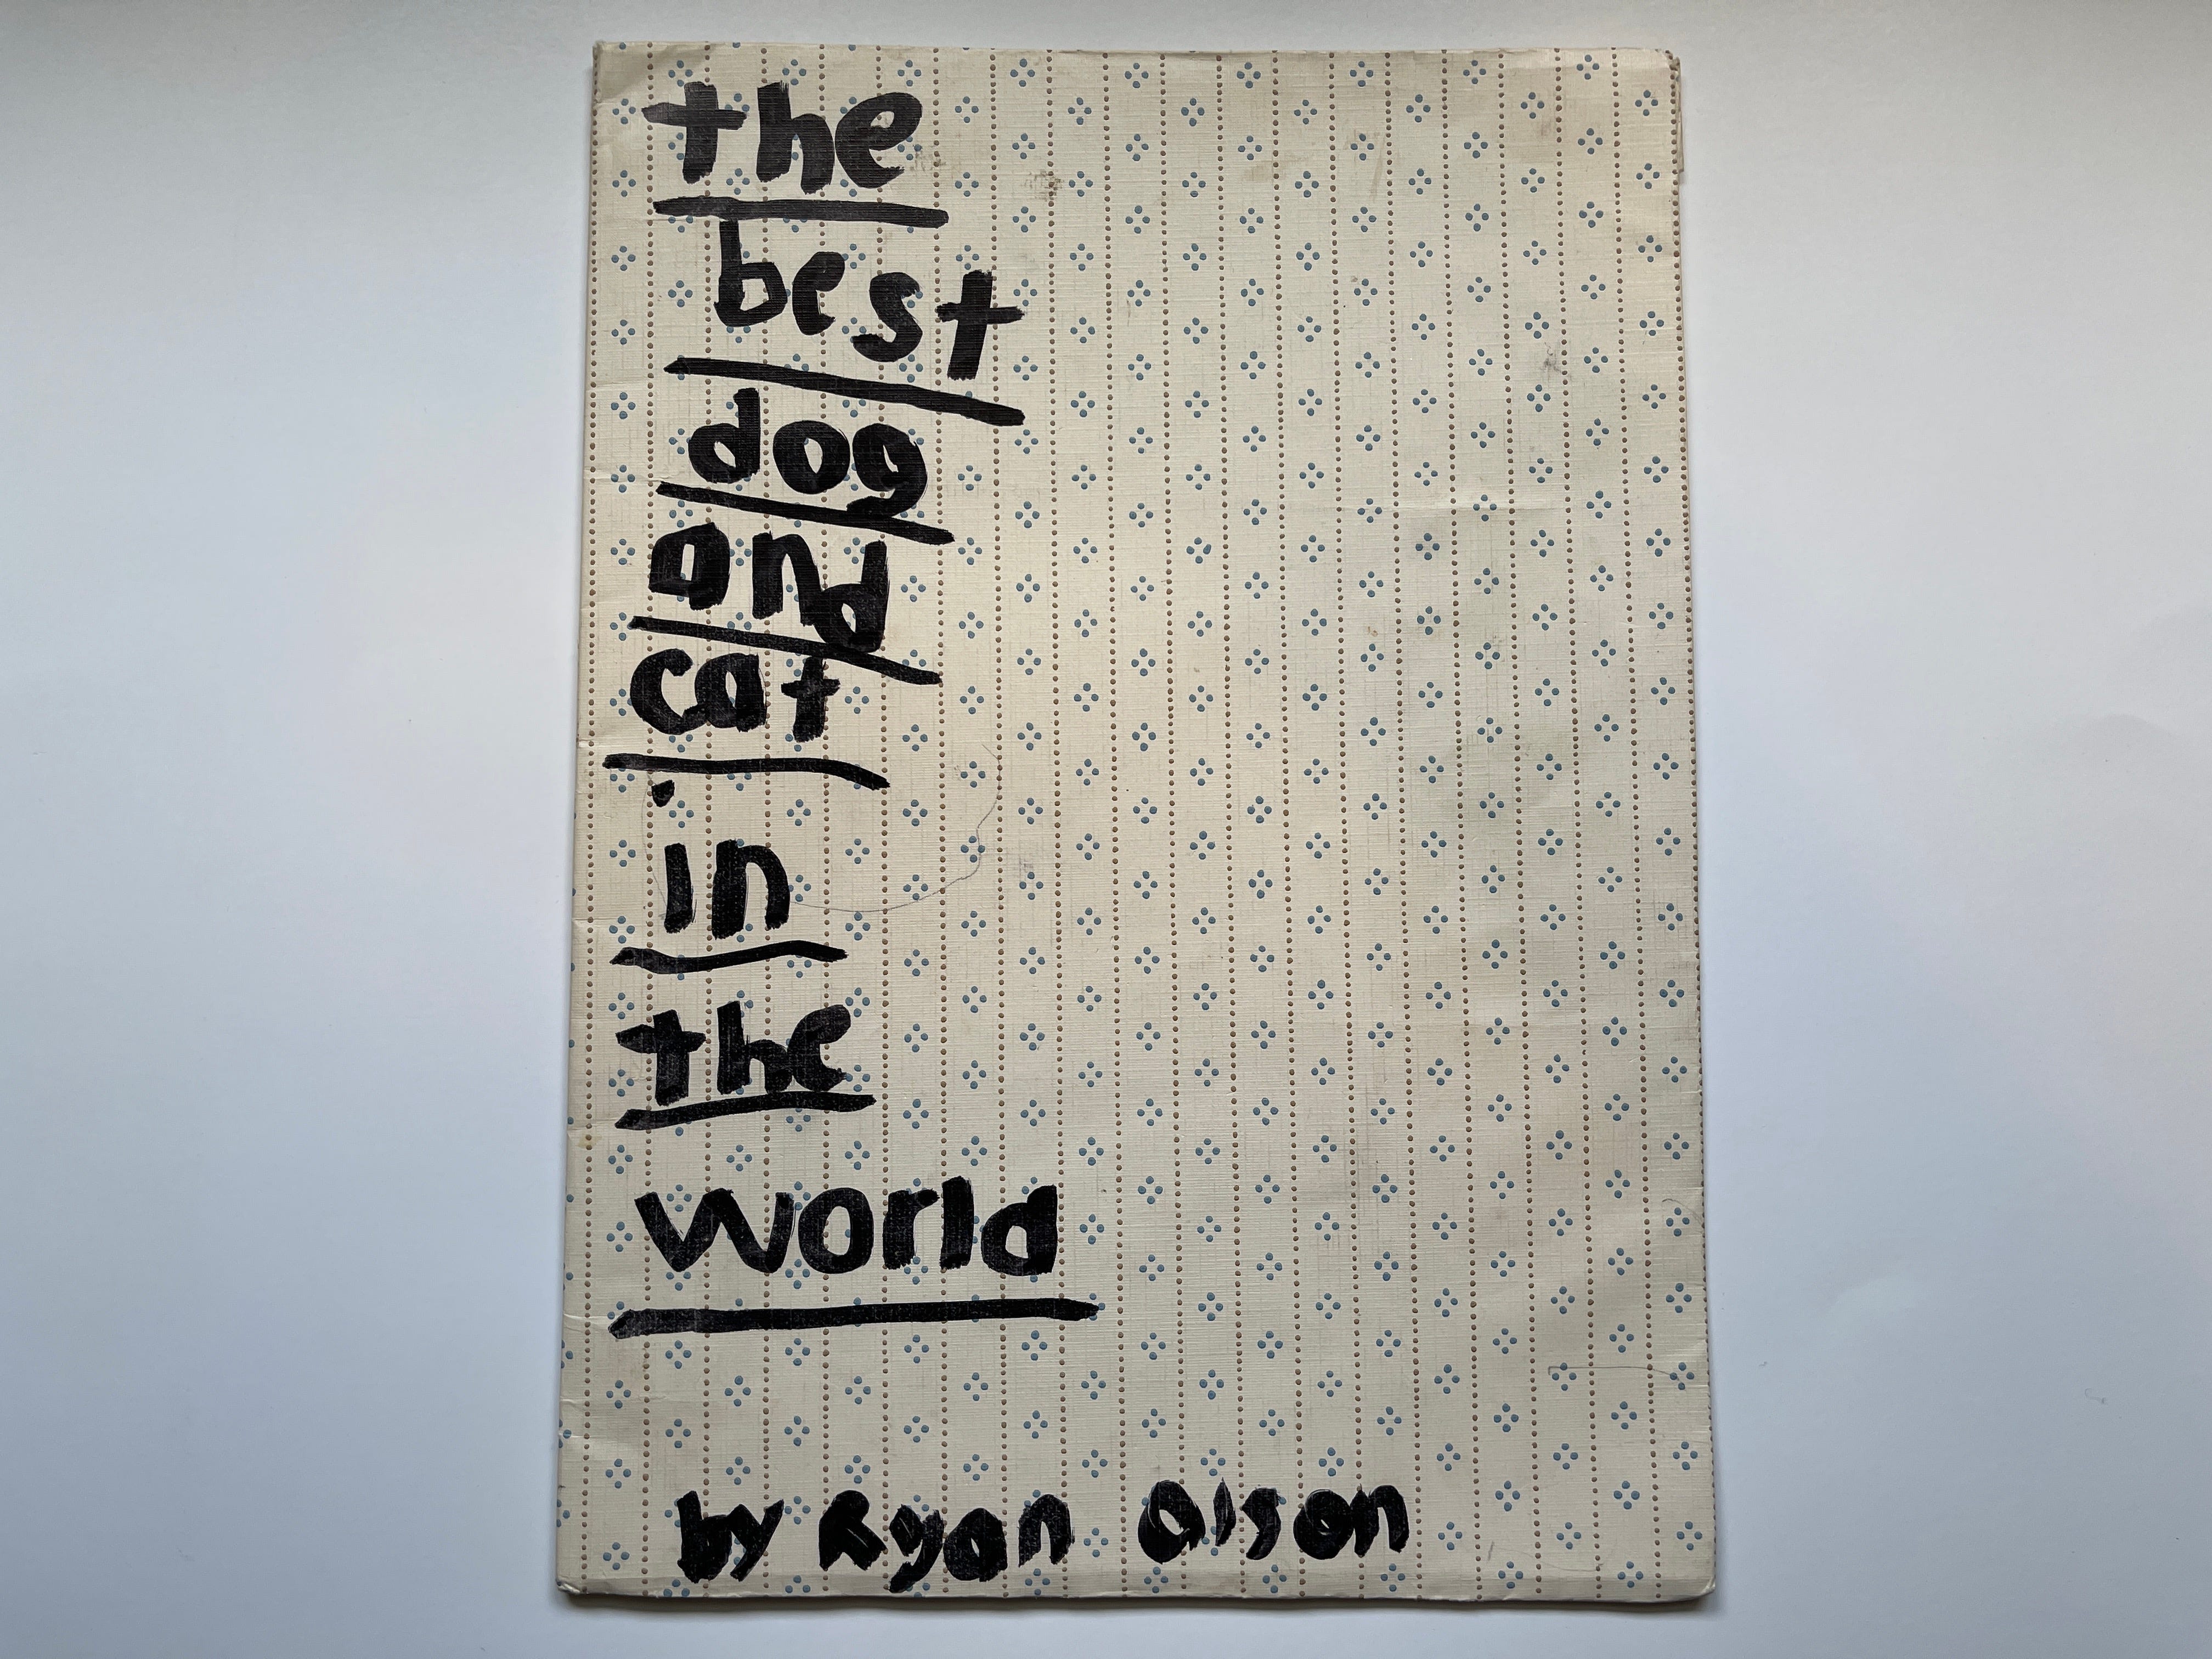 the
best
dog
and
cat
in
the
world
by Ryan Olson